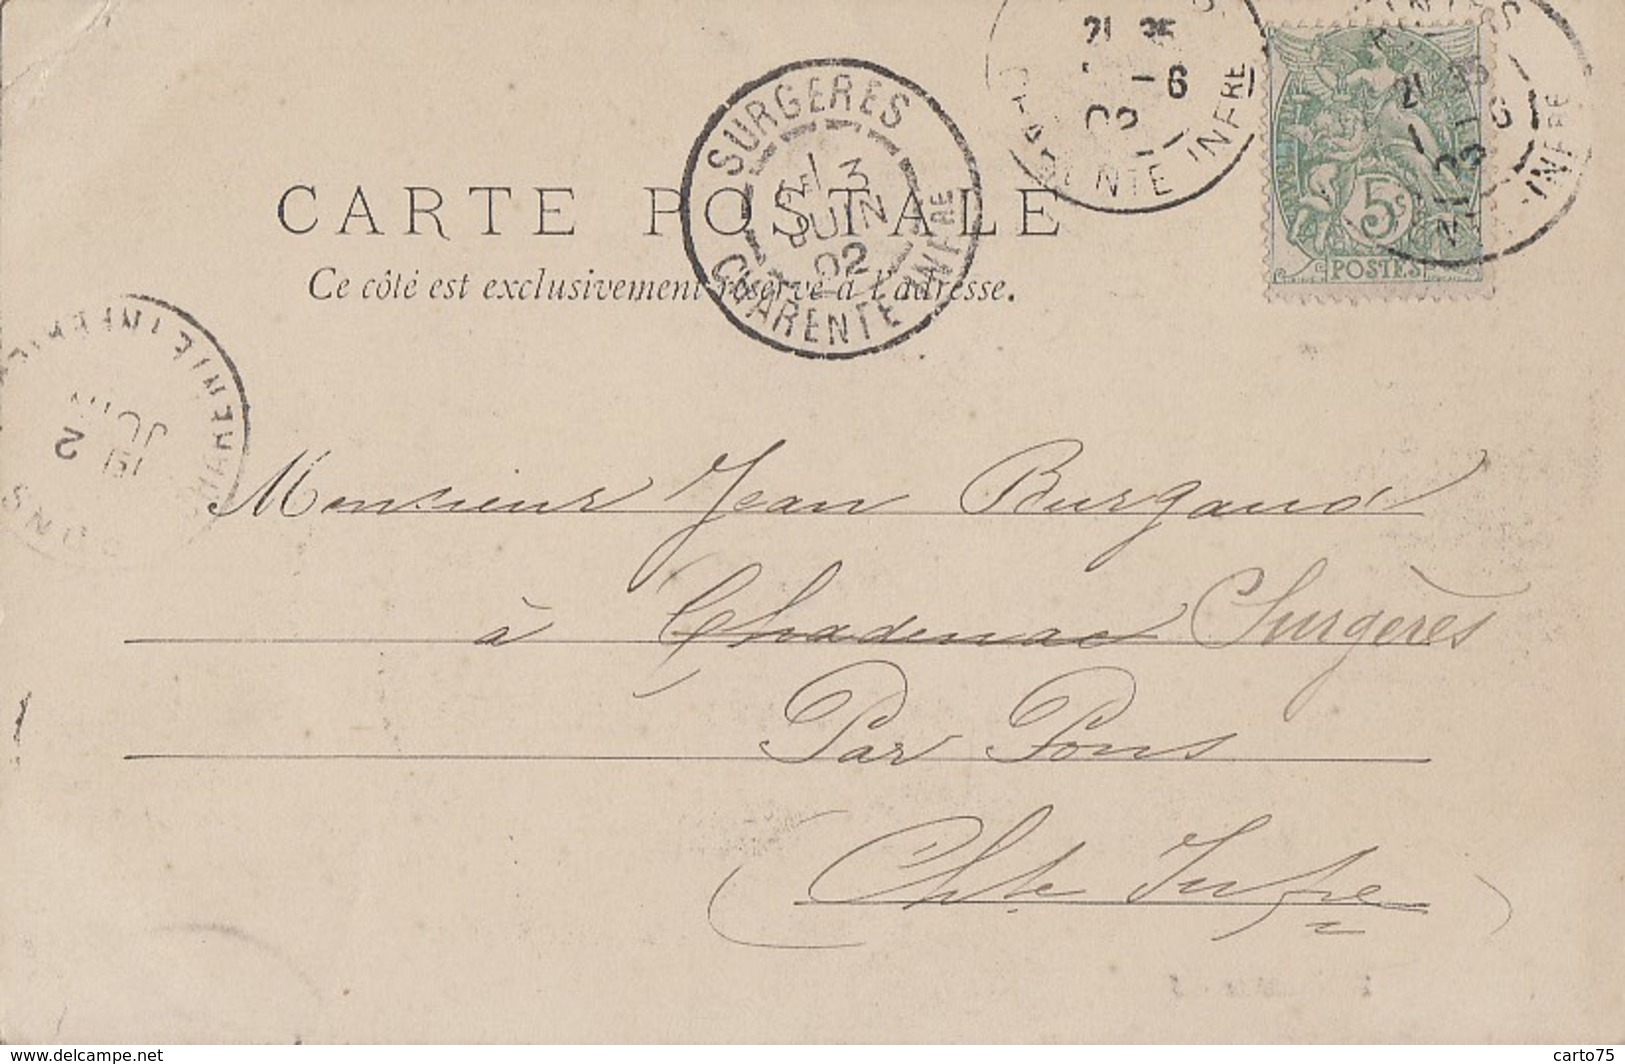 CARTE POSTALE
Ce côté est exclusivement réservé à l'adresse.
SURGÈRES
3
JUIN
02
CHARENTE INFRE
21 35
-6
02
CHARENTE INFRE
5c
POSTES
21
6
02
INFRE
2
JUIN
PONS
Monsieur Jean Burgaud
à Chadenac Surgères
Par Pons
(Chte Infre)
www.delcampe.net
carto75